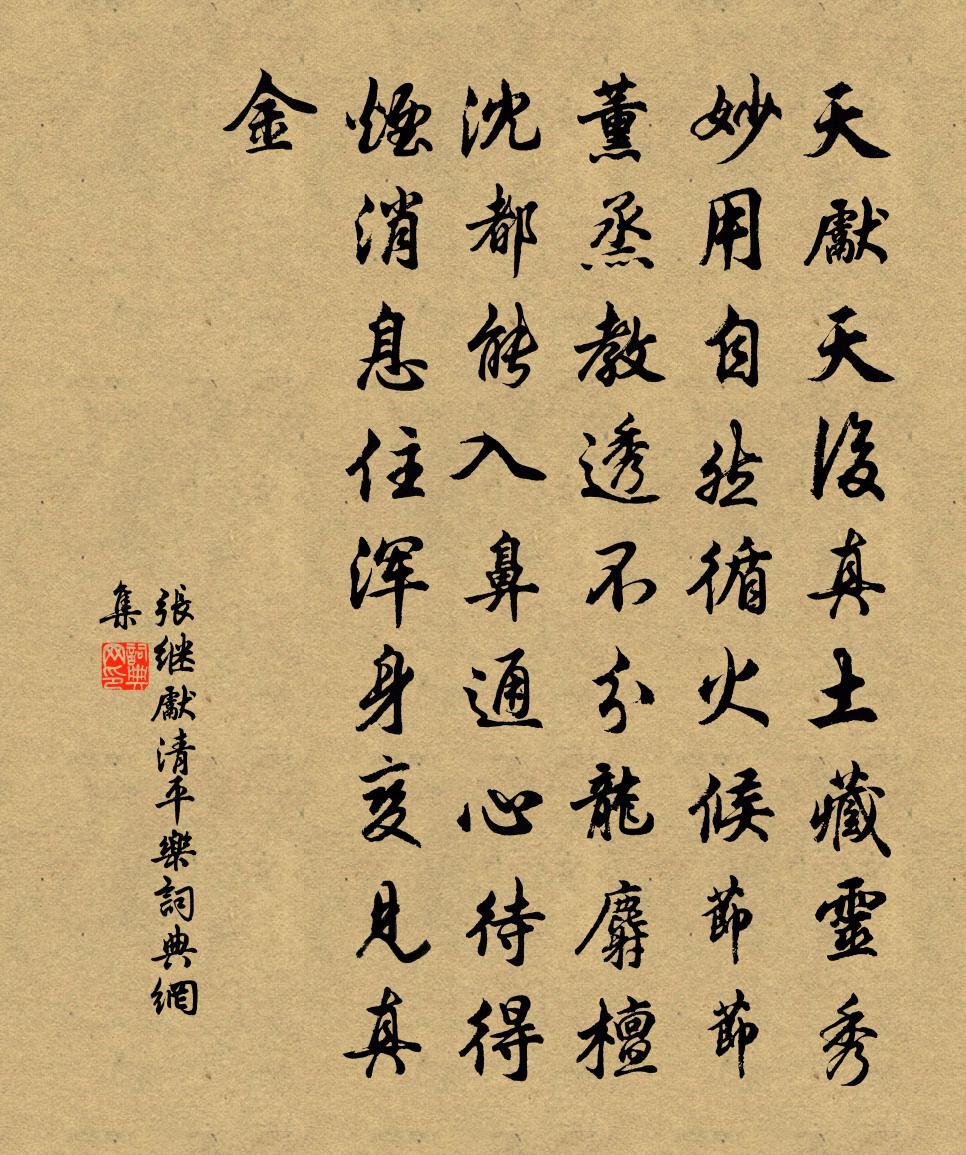 天獻天後真土藏靈秀
妙用自然循火候節節
薰蒸教透不分龍麝檀
沈都能入鼻通心待得
煙消息住渾身變見真
金
張继獻清平樂詞典網
集
詞典网印